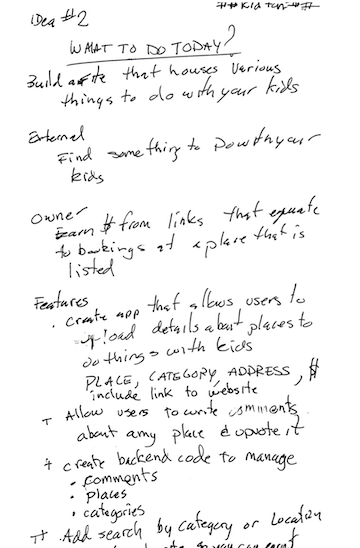 IDea #2
WHAT TO DO TODAY?
Build a site that houses various
things to do with your kids
External
Find something to Do with your
kids
Owner
Earn $ from links that equate
to bookings at a place that is
listed
Features
· create app that allows users to
upload details about places to
do things with kids
PLACE, CATEGORY, ADDRESS, #
include link to website
+ Allow users to write comments
about any place & upvote it
+ create backend code to manage
· comments
· places
· categories
++ Add search by category or Location
so you can